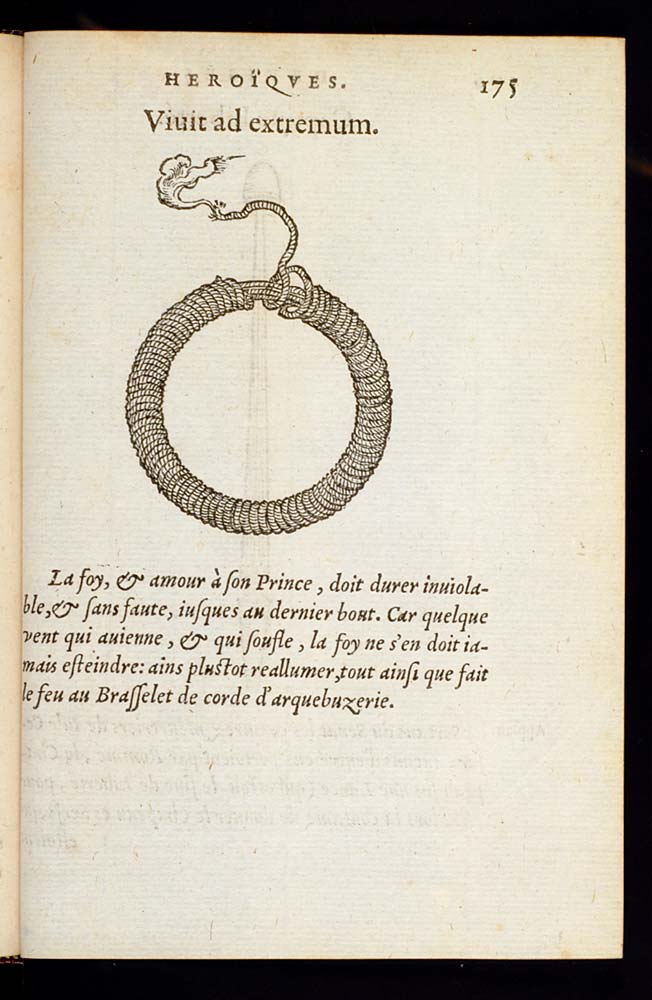 HEROÏQVES. 175
Viuit ad extremum.
La foy, & amour à ſon Prince, doit durer inuiola-
ble, & ſans faute, iuſques au dernier bout. Car quelque
vent qui auienne, & qui ſoufle, la foy ne s'en doit ia-
mais eſteindre: ains pluſtot reallumer, tout ainſi que fait
le feu au Braſſelet de corde d'arquebuzerie.